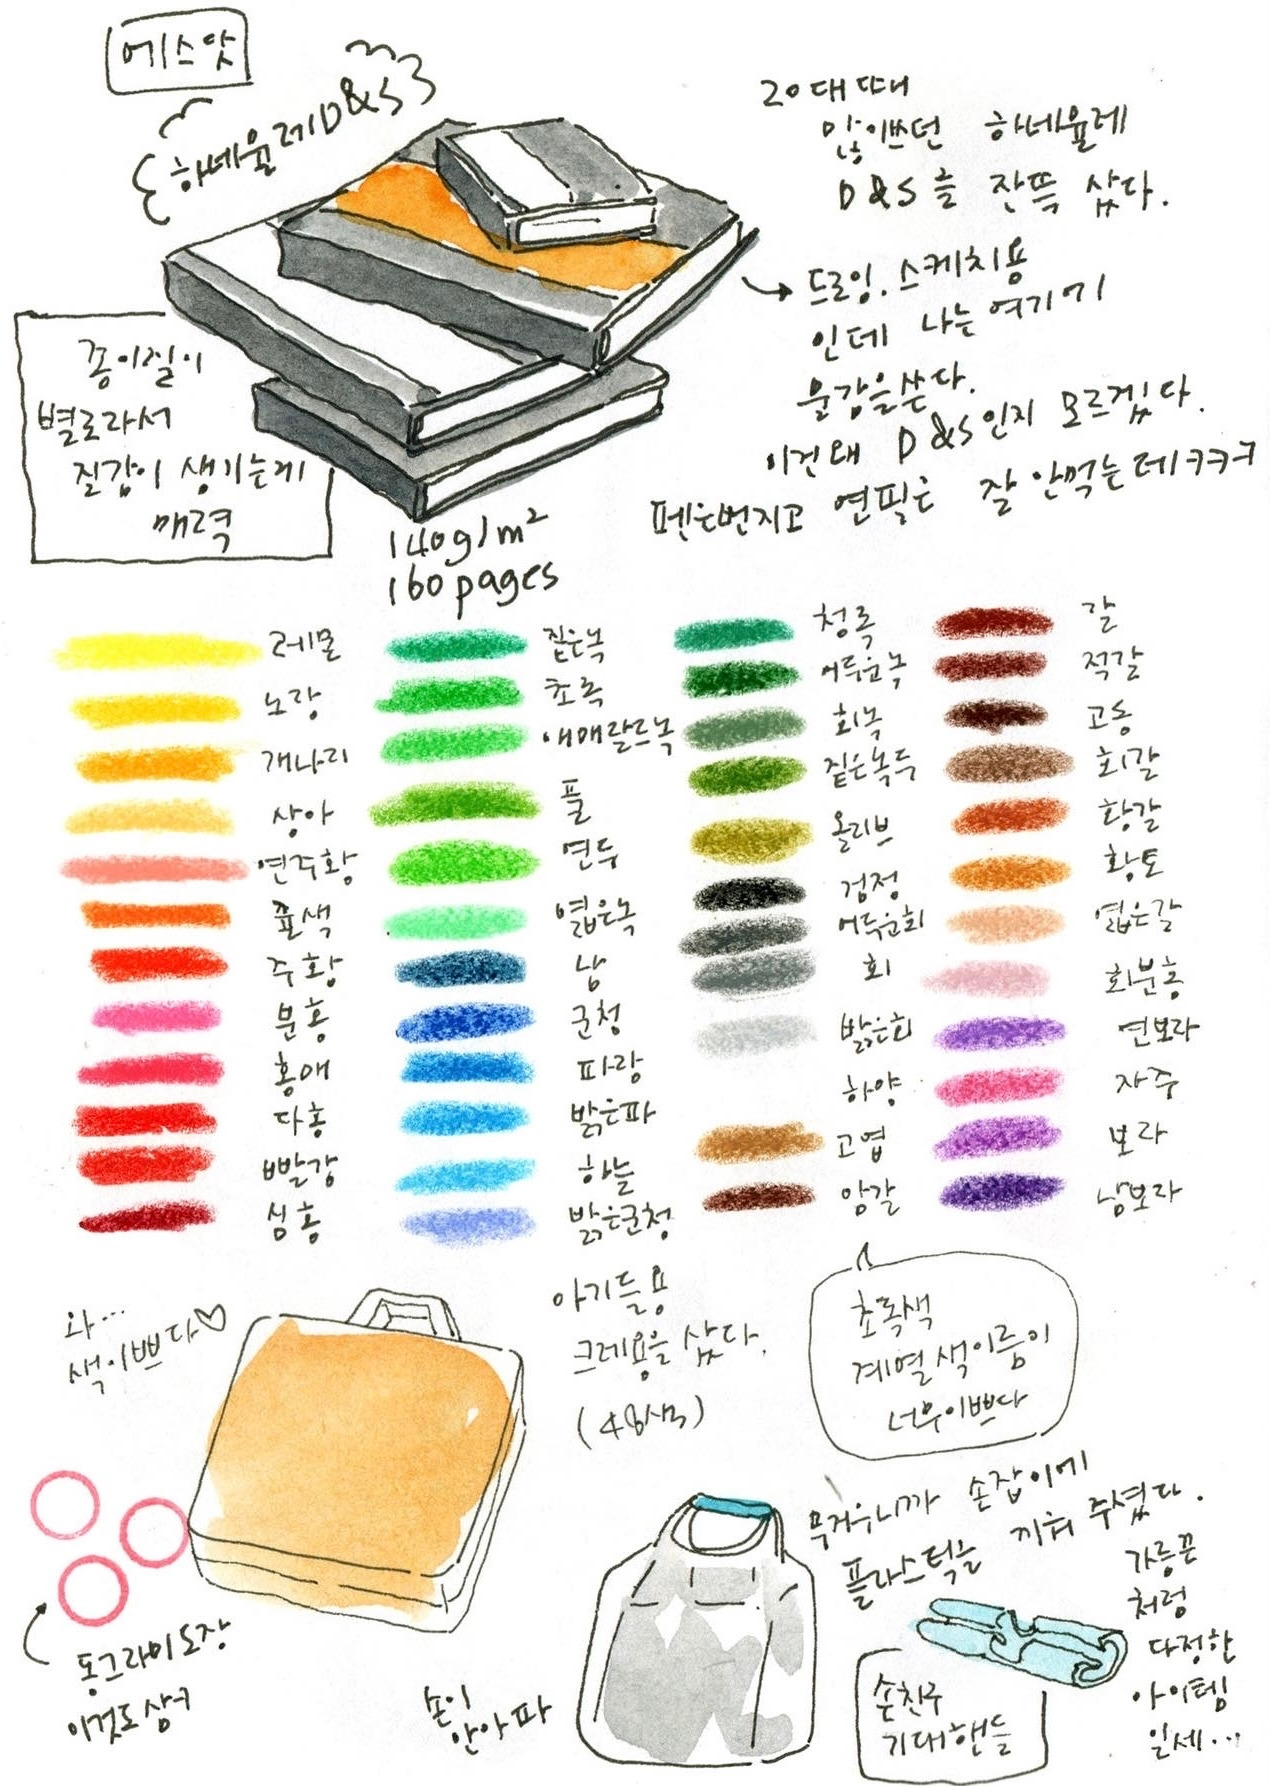 에스앗
하네뮬레D&S
20대때
많이쓰던 하네뮬레
D&S를 잔뜩 샀다.
드로잉.스케치용
인데 나는 여기에
물감을쓴다.
이건왜 D&S인지 모르겠다.
펜은번지고 연필은 잘 안먹는데ㅋㅋㅋ
종이질이
별로라서
질감이 생기는게
매력
140g/m²
160pages
레몬
노랑
개나리
상아
연주황
귤색
주황
분홍
홍매
다홍
빨강
심홍
짙은녹
초록
애매랄드녹
풀
연두
엷은녹
남
군청
파랑
밝은파
하늘
밝은군청
청록
어두운녹
회녹
짙은녹두
올리브
검정
어두운회
회
밝은회
하양
고엽
암갈
갈
적갈
고동
회갈
황갈
황토
엷은갈
회분홍
연보라
자주
보라
남보라
와...
색이쁘다♡
아기들용
크레용을 샀다.
(48색)
초록색
계열 색이름이
너무이쁘다
동그라미도장
이것도삼ㅋ
손이
안아파
무거우니까 손잡이에
플라스틱을 끼워 주셨다.
가릉끈
처럼
다정한
아이템
일세...
손친구
기대핸들